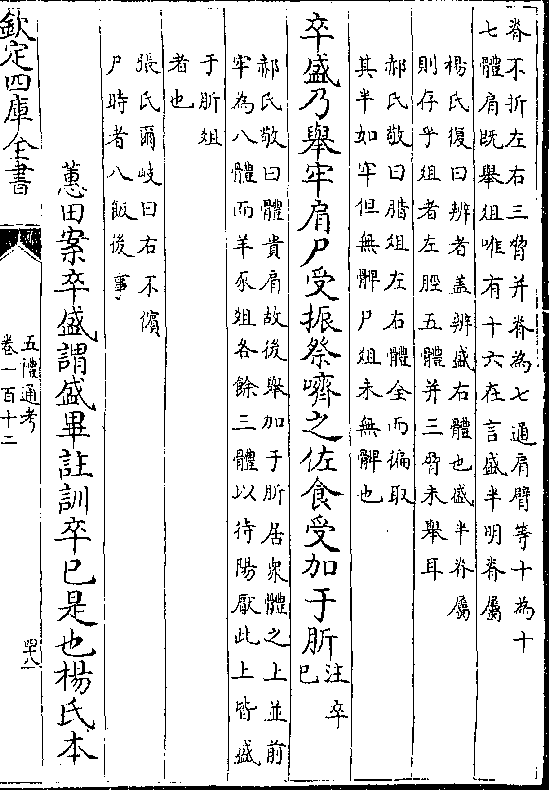 脊不折左右三脅并脊為七通肩臂等十為十
七體肩既舉俎唯有十六在言盛半明脊屬
楊氏復曰辨者盖辨盛右體也盛半脊屬
則存乎俎者左胫五體并三脅未舉耳
郝氏敬曰腊俎左右體全而徧取
其半如牢但無髀尸俎未無髀也
卒盛乃舉牢肩尸受振祭嚌之佐食受加于肵
注卒
已
郝氏敬曰體貴肩故後舉加于肵居衆體之上並前
牢為八體而羊豕俎各餘三體以待陽厭此上皆盛
于肵俎
者也
張氏爾岐曰右不儐
尸時者八飯後事
蕙田案卒盛謂盛畢註訓卒已是也楊氏本
欽定四庫全書
五禮通考
卷一百十二
四八